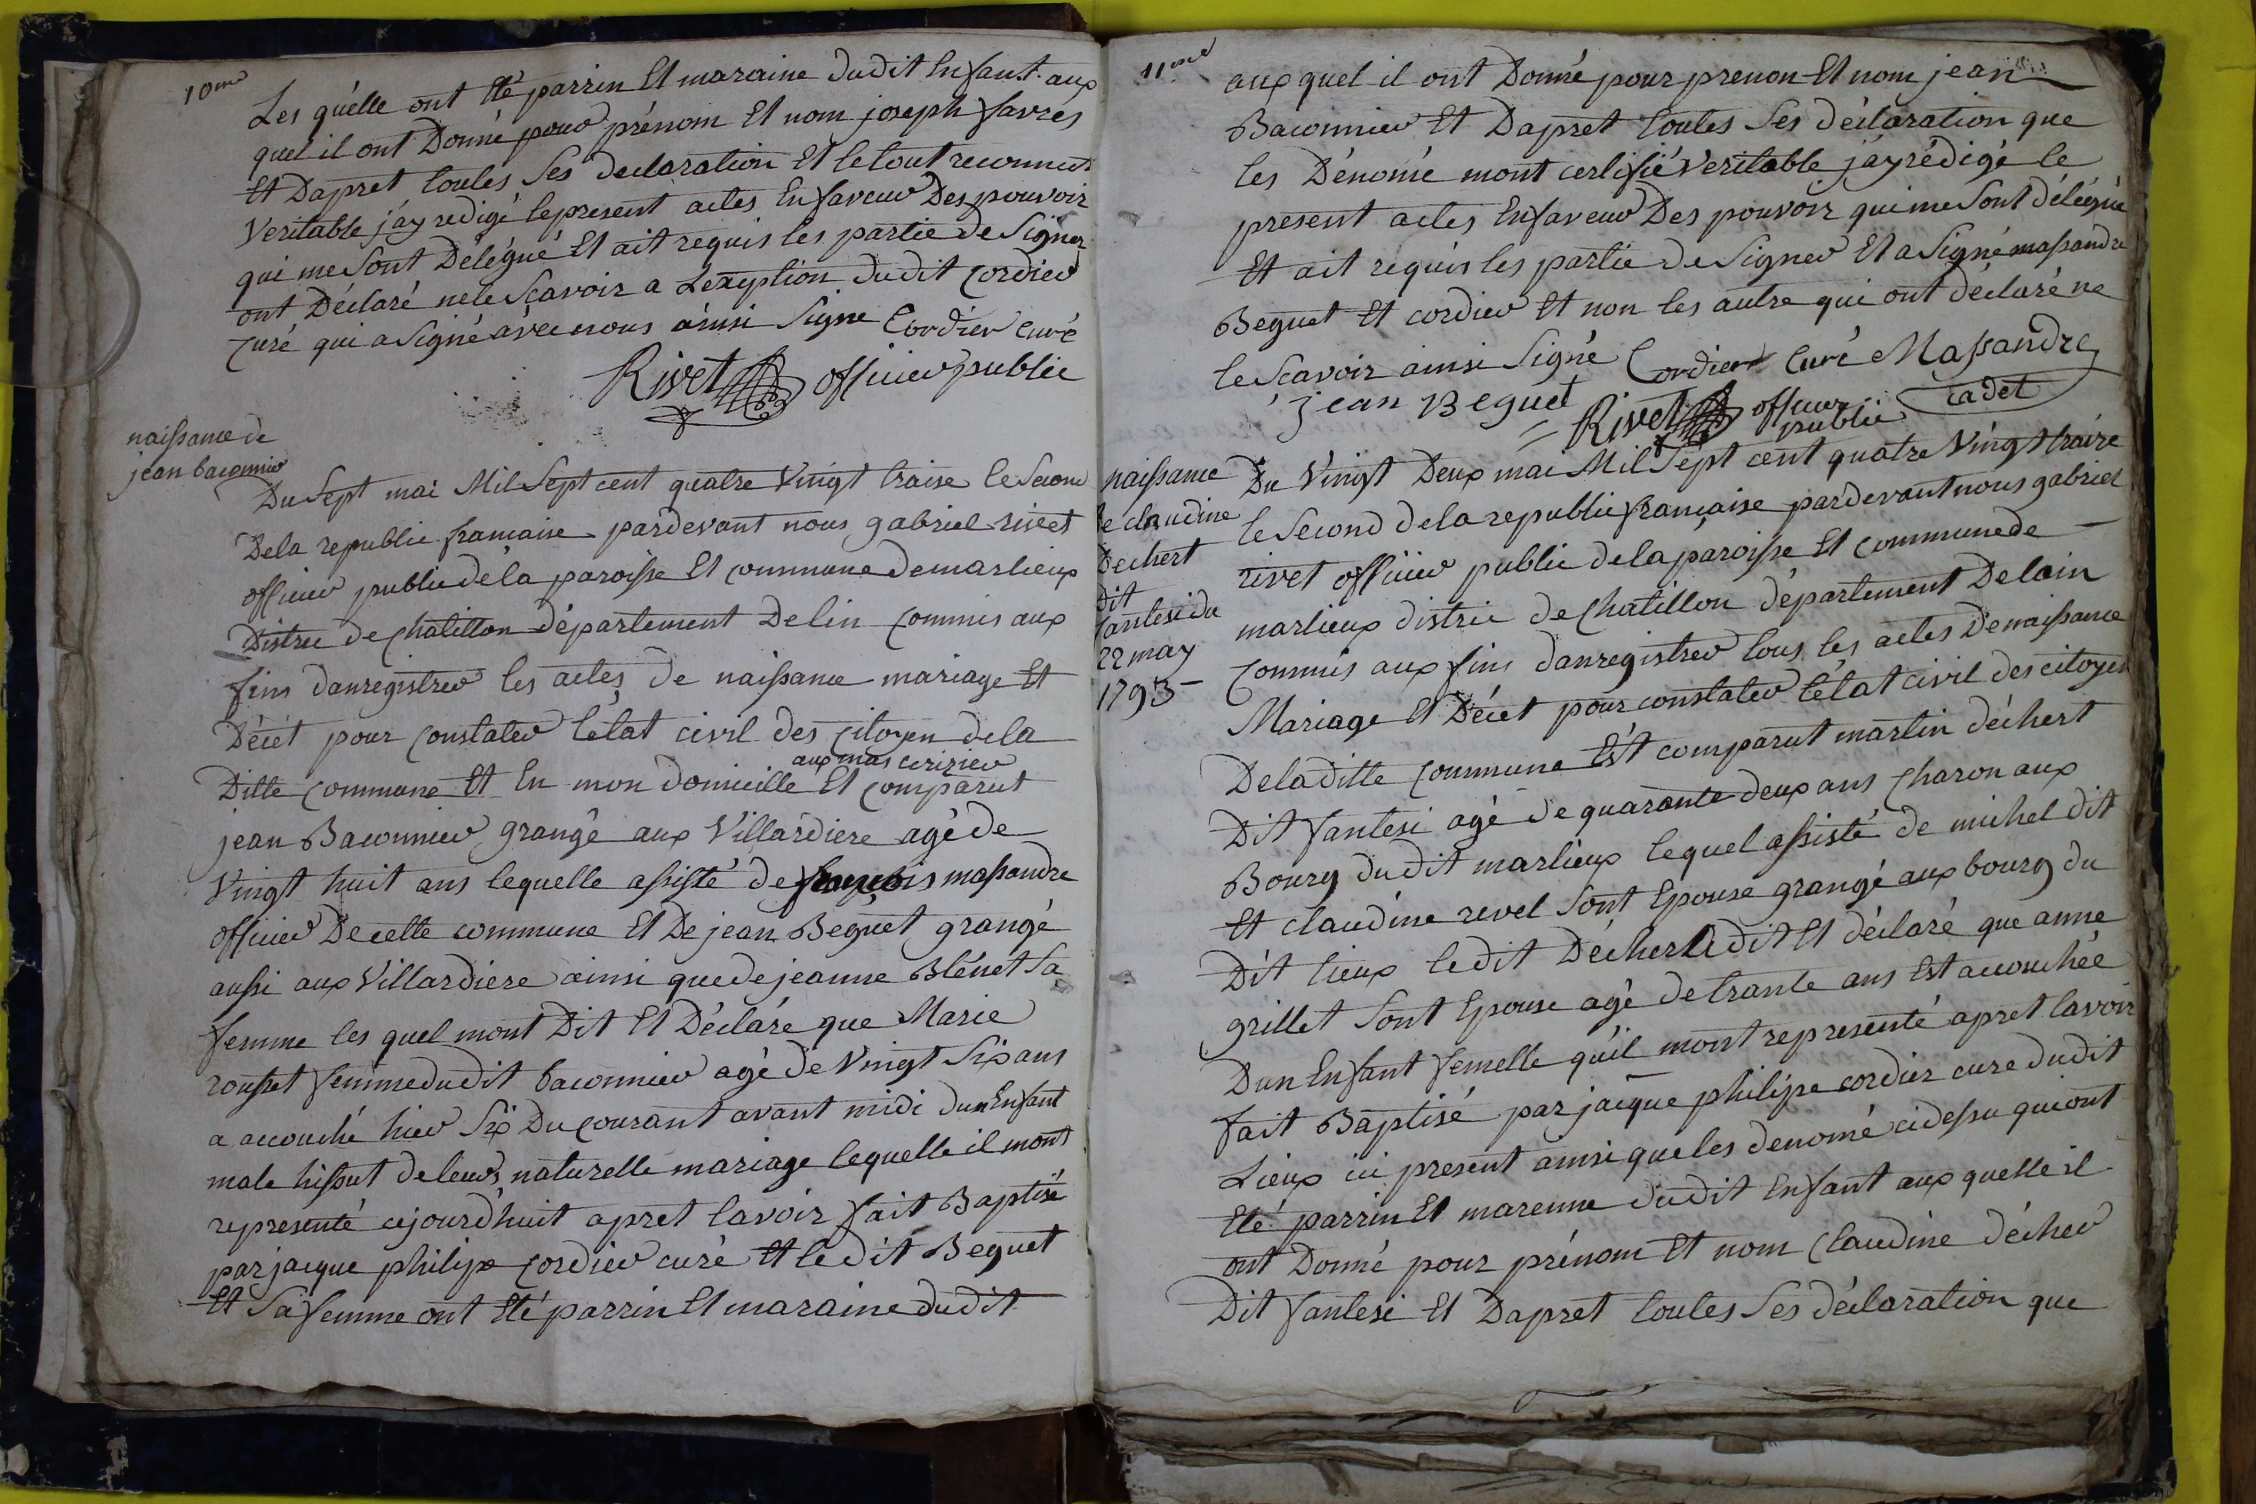 10me
Les quelle ont Eté parrin Et maraine dudit Enfant aux
quel il ont Donné pour prénom Et nom joseph favres
Et Dapret toutes ses declaration Et le tout reconnut
Veritable j'ay redigé le present actes En faveur Des pouvoir
qui me sont Délégué Et ait requis les partie de Signer
ont Déclaré ne le sçavoir a Lexeption dudit cordier
curé qui a Signé avec nous ainsi Signe Cordier curé
Rivet officier public
naissance de
jean baconnier
Du Sept mai Mil Sept cent quatre Vingt traise le second
Dela republic francaise pardevant nous gabriel rivet
officier public dela paroisse Et commune de marlieux
Distric de chatillon département Delin commis aux
fins danregistrer les actes de naissance mariage Et
Décét pour constater létat civil des citoyen dela
aux mas cerizier
Ditte commune Et En mon domicille Et comparut
jean Baconnier grangé aux Villardiere agé de
Vingt huit ans lequelle assisté de françois massandre
officier Decette commune Et De jean Beguet grangé
aussi aux Villardiere ainsi que de jeanne Blénet sa
femme les quel mont Dit Et Déclaré que Marie
rousset femme dudit baconnier agé de Vingt Six ans
a accouché hier Six Du courant avant midi dun Enfant
male hissut de leurs naturelle mariage lequelle il mont
representé cejourd'huit apret lavoir fait Baptisé
par jacque philipe cordier curé Et ledit Beguet
Et Sa femme ont Eté parrin Et maraine dudit
11eme
aux quel il ont Donné pour prenon Et nom jean
Baconnier Et Dapret toutes Ses déclaration que
les Dénomé mont certifié Veritable j'ay rédigé le
present actes En faveur Des pouvoir qui me Sont délégué
Et ait requis les partie de Signer Et a Signé massandre
Beguet Et cordier Et non les autre qui ont déclaré ne
le Scavoir ainsi Signé Cordier Curé Massandre
cadet
jean Beguet
Rivet officier
public
naissance
de claudine
Dechert
dit
fantesi du
22 may
1793
Du Vingt Deux mai Mil Sept cent quatre Vingt traize
le Second dela republic française pardevant nous gabriel
rivet officier public dela paroisse Et commune de
marlieux distric de Chatillon département Delain
commis aux fins danregistrer tous les actes De naissance
Mariage Et Décet pour constater létat civil des citoyen
Deladitte commune Est comparut martin déchert
Dit fantesi agé de quarante deux ans charon aux
Bourg dudit marlieux lequel assisté de michel dit
Et claudine revel Sont Epouse grangé aux bourg du
Dit lieux ledit Déchert dit Et déclaré que anne
grillet Sont Epouse agé de trante ans Est accouchée
Dun Enfant femelle quil mont representé apret lavoir
fait Baptisé par jacque philipe cordier cure dudit
Lieux ici present ainsi que les denomé cidessu qui ont
Eté parrin Et marenne dudit Enfant aux quelle il
ont Donné pour prénom Et nom Claudine décher
Dit fantesi Et Dapret toutes Ses déclaration que